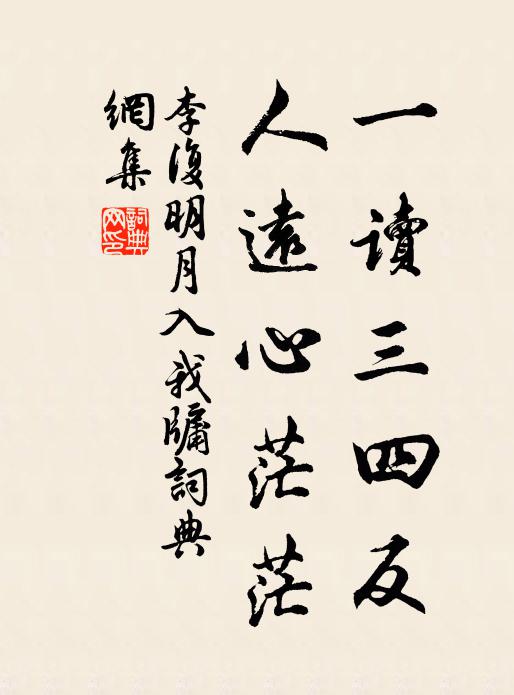 一讀三四反
人遠心茫茫
李復明月入我牖詞典
網集
詞典网印